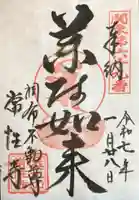 奉納
令和七年
一月八日
薬師如来
調布不動尊
常性寺